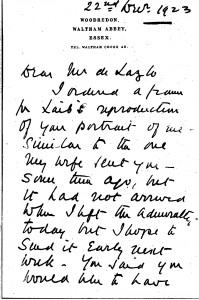 22nd Dec. 1923
WOODREDON,
WALTHAM ABBEY,
ESSEX.
TEL. WALTHAM CROSS 43.
Dear Mr de Laszlo
I ordered a frame
for Laib's reproduction
of your portrait of me
similar to the one
my wife sent you –
some time ago, but
it had not arrived
when I left the Admiralty
today but I hope to
send it early next
week – You said you
would like to have